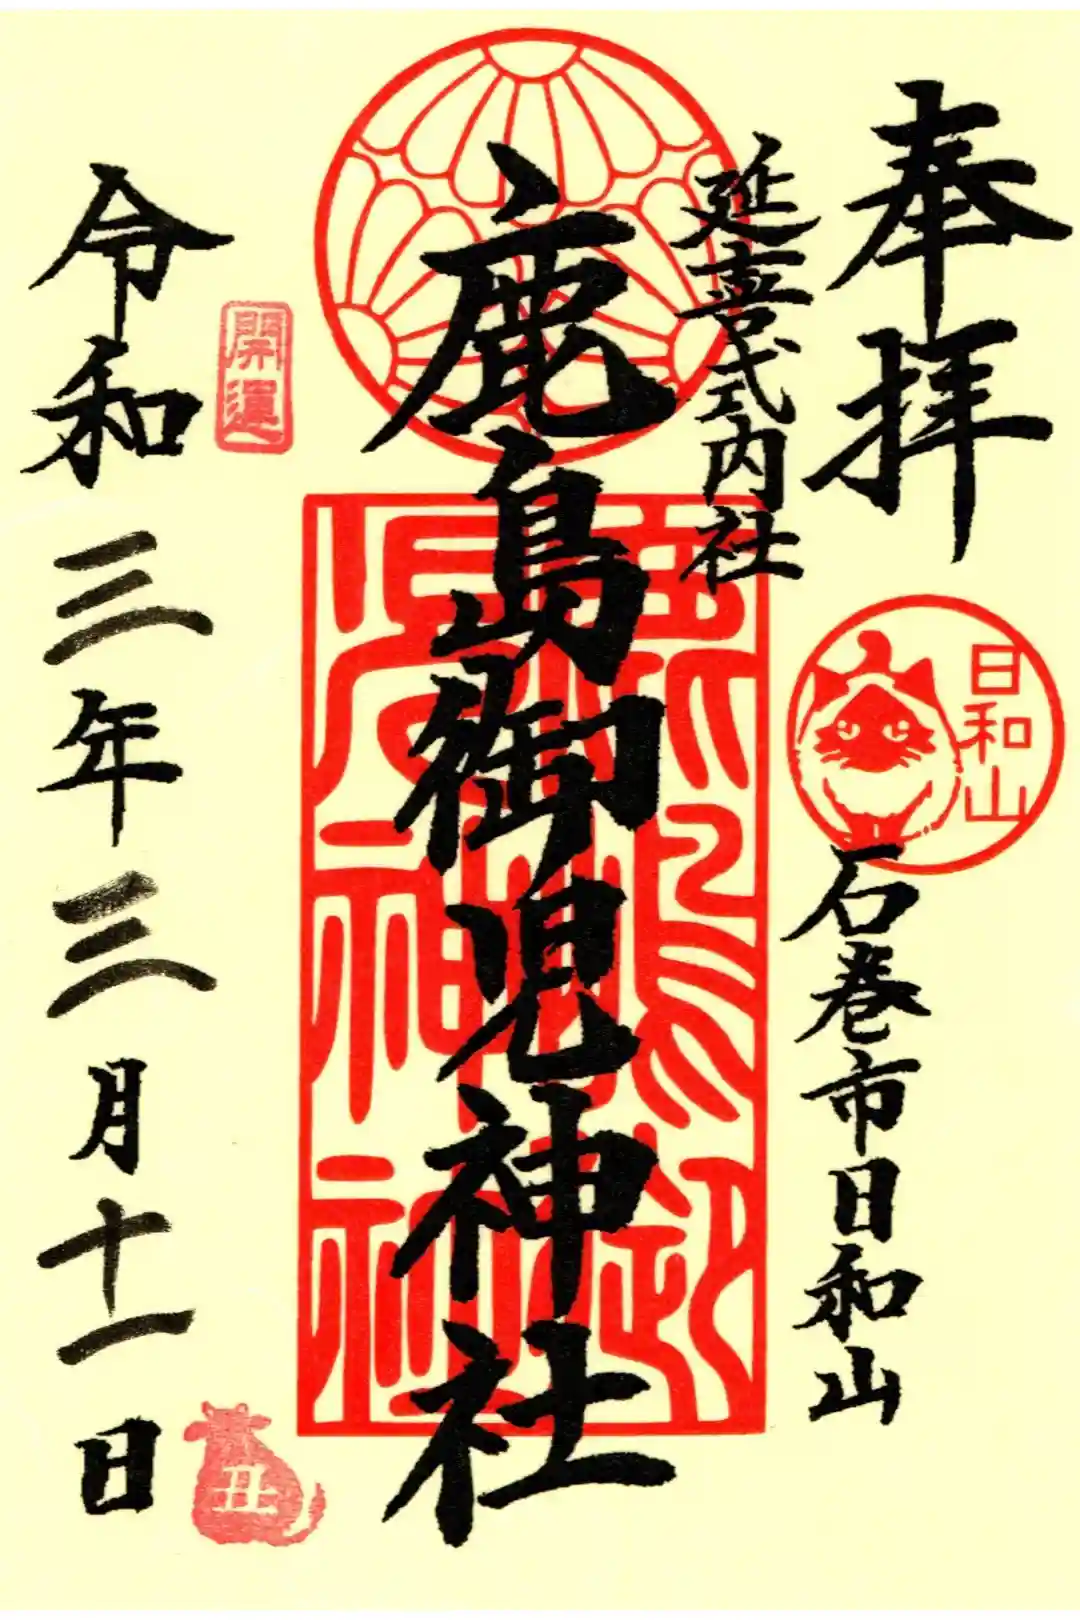 奉拝
延喜式内社
日和山
石巻市日和山
鹿島御児神社
鹿島御児神社
開運
令和三年三月十一日
丑